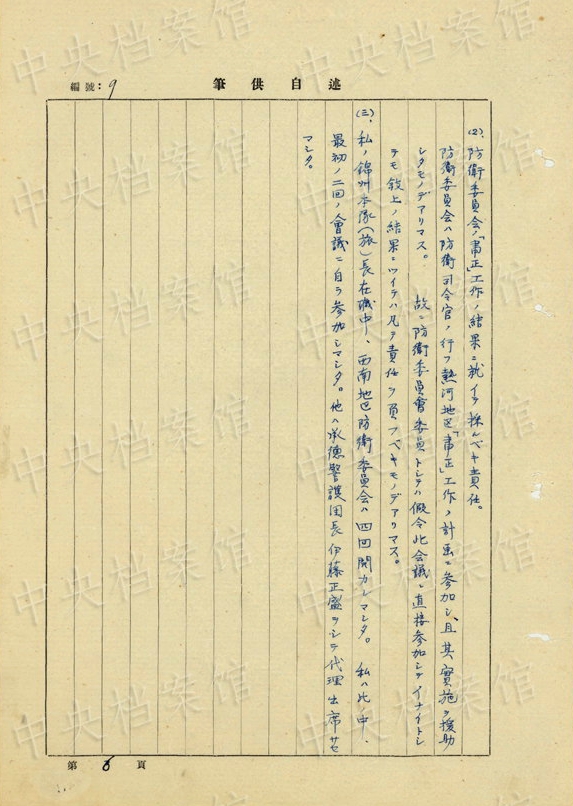 筆供自述
編號：9
(2)、防衛委員会ノ「粛正」工作ノ結果ニ就イテ採ルベキ責任。
防衛委員会ハ防衛司令官ノ行フ熱河地区「粛正」工作ノ計画ニ参加シ、且其実施ヲ援助
シタモノデアリマス。 故ニ防衛委員會委員トシテハ假令此会議ニ直接参加シテイナイトシ
テモ敘上ノ結果ニツイテハ凡テ責任ヲ負フベキモノデアリマス。
(三)、私ノ錦州本隊(旅)長在職中、西南地区防衛委員会ハ四回開カレマシタ。 私ハ此ノ中、
最初ノ二回ノ會議ニ自ラ参加シマシタ。他ハ承徳警護団長伊藤正盛ヲシテ代理出席サセ
マシタ。
第 6 頁
中央档案馆